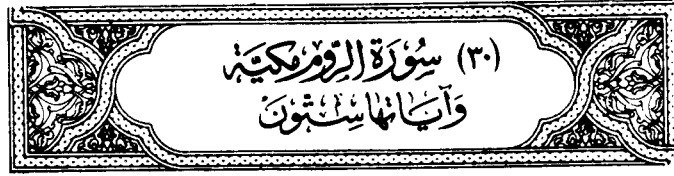 (٣٠) سُورَةُ الرُّومِ مَكِيَّةٌ
وَآيَاتُهَا سِتُّونَ